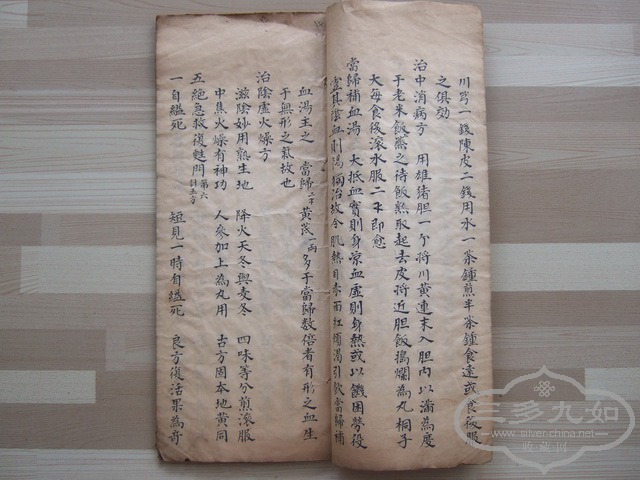 川芎一錢陳皮二錢用水一茶鍾煎半茶鍾食遠或食後服
之俱効
治中消病方 用雄猪胆一个将川黄連末入胆內以滿為度
于老米飯蒸之待飯熟取起去皮将近胆飯搗爛為丸桐子
大每食後滚水服二 即愈
當歸補血湯 大抵血實則身凉血虚則身熱或以饑困勞役
虚其陰血則陽獨治故令肌熱目赤面紅煩渴引飲當歸補
血湯主之 當歸 黄芪一両多于當歸数倍者有形之血生
于無形之氣故也
治陰虚火燥方
滋陰妙用熟生地 降火天冬與麦冬 四味等分煎滚服
中焦火燥有神功 人參加上為丸用 古方固本地黄同
五絕急救復甦門 第六 計五方
一自縊死 短見一時自縊死 良方復活果為奇
三多九如
www.silver.com.cn
收藏閣